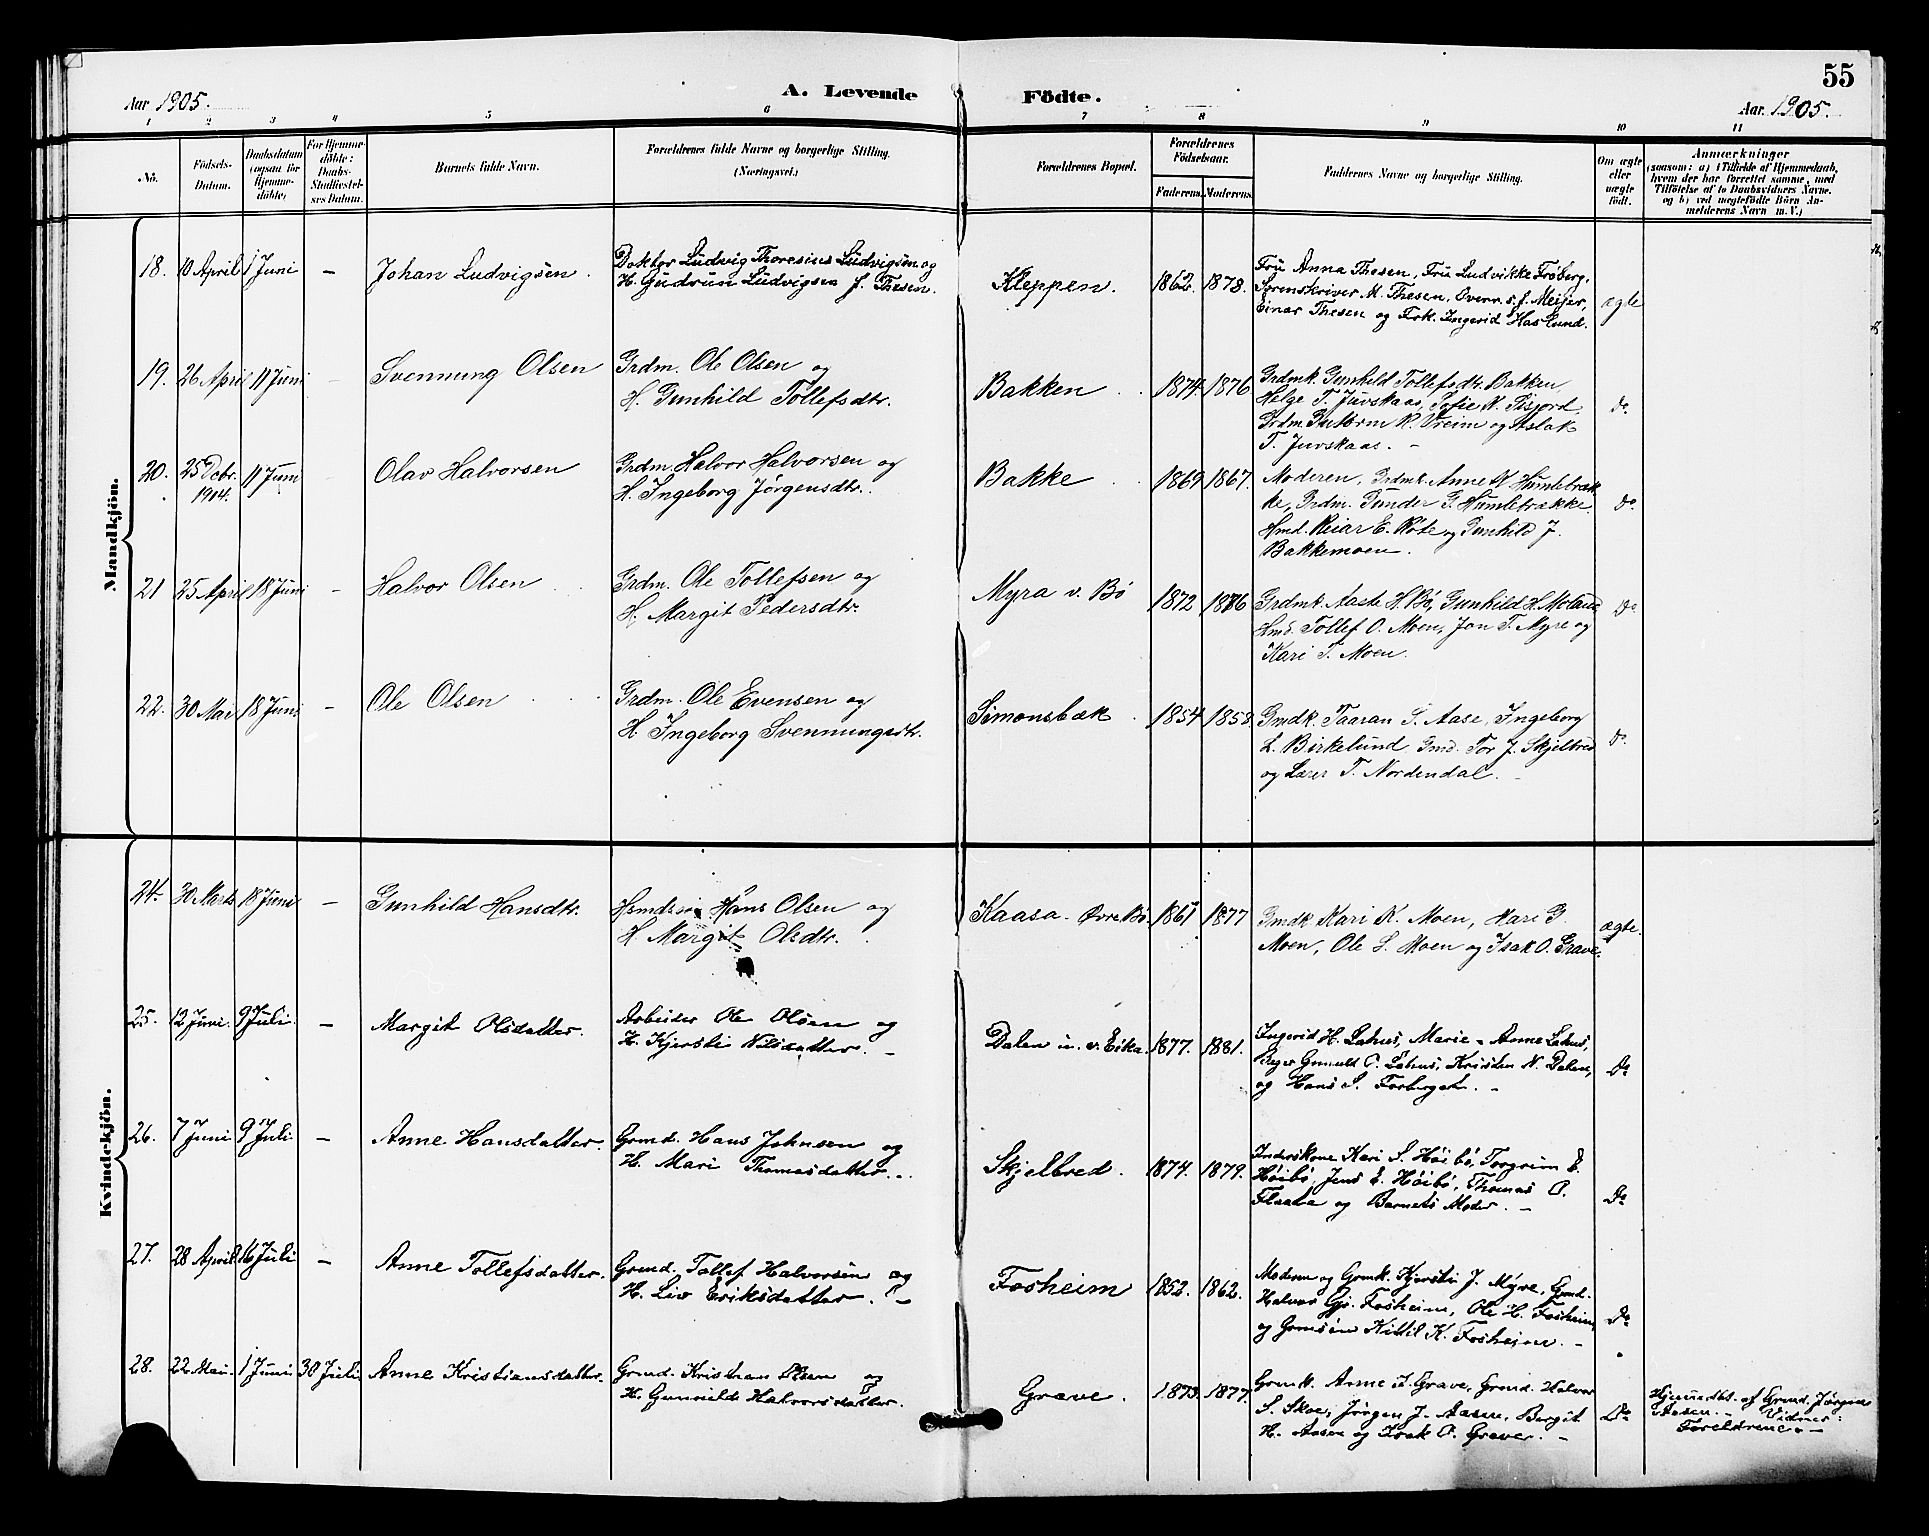 55
Aar 1905.
A. Levende Födte.
Aar 1905.
1 2 3 4 5 6 7 8 9 10 11
No.
Födsels-Datum.
Daabsdatum (ogsaa for Hjemmedöbte)
For Hjemmedöbte: Daabs-Stadfæstelses Datum.
Barnets fulde Navn.
Forældrenes fulde Navne og borgerlige Stilling.
(Næringsvei.)
Forældrenes Bopæl.
Forældrenes Födselsaar.
Faderens. Moderens.
Faddernes Navne og borgerlige Stilling.
Om ægte eller uægte födt.
Anmærkninger
(saasom: a) i Tilfælde af Hjemmedaab, hvem der har forrettet samme, med Tilföielse af to Daabsvidners Navne. og b) ved uægtefödte Börn Anmelderens Navn m. V.)
Mandkjön.
18. 10 April 1 Juni – Johan Ludvigsen.
Doktor Ludvig Thoresius Ludvigsen og
H. Gudrun Ludvigsen f. Thesen.
Kleppen. 1862. 1878.
Fru Anna Thesen, Fru Ludvikke Froberg,
Sorenskriver M. Thesen, Overr.s.f. Meijer,
Einar Thesen og Frk. Ingerid Haslund.
ægte
19. 26 April 11 Juni – Svennung Olsen
Grdm. Ole Olsen og
H. Gunhild Tollefsdtr.
Bakken 1874. 1876
Grdmk. Gunhild Tollefsdtr. Bakken,
Helge T. Juvskaas, Sofie N. Tisjord,
Grdm. Guttorm K. Vreim og Aslak
T. Juvskaas. –
do
20. 25 Debr. 1904. 11 Juni Olav Halvorsen
Grdm. Halvor Halvorsen og
H. Ingeborg Jørgensdtr.
Bakke 1869 1867.
Moderen, Grdmk. Anne N. Humlebræk
ke, Grdm. Gunder G. Humlebrække.
Hmd. Reiar E. Rote og Gunhild J.
Bakkemoen.
do
21 25 April 18 Juni – Halvor Olsen
Grdm. Ole Tollefsen og
H. Margit Pedersdtr.
Myra v. Bø 1872 1876
Grdmk. Aaste H. Bø, Gunhild H. Moland
Hmd. Tollef O. Moen, Jon T. Myre og
Kari T. Moen.
Do
22. 30 Mai 18 Juni – Ole Olsen
Grdm. Ole Evensen og
H. Ingeborg Svennungsdtr.
Simonsbæk 1854 1858
Gmdk. Taaran S. Aase, Ingeborg
L. Birkelund, Gmd. Tor J. Skjelbred
og Lærer T. Nordendal. –
do
Kvindekjön.
24. 30 Marts 18 Juni – Gunhild Hansdtr.
Hans Olsen og
H. Margit Olsdtr.
Kaasa. Øvrebø. 1867 1877
Gmdk Kari K. Moen, Kari G.
Moen, Ole L. Moen og Isak O. Grave.
ægte.
25. 12 Juni. 9 Juli. – Margit Olsdatter.
Arbeider Ole Olsen og
H. Kjersti Nilsdatter. –
Dalen u. v. Eika. 1877. 1881.
Ingerid H. Lahus, Marie – Anne Lahus,
Gunuld O. Lahus, Kristen N. Dalen,
og Hans S. Forberget. –
Do
26. 7 Juni 9 Juli – Anne Hansdatter.
Grmd. Hans Johnsen og
H. Mari Thomasdatter.
Skjelbred. 1874. 1879.
Inderskone Kari S. Høibø, Torgrim E.
Høibø, Jens E. Høibø, Thomas O.
Flaata og Barnets Moder. –
Do
27. 28 April 16 Juli – Anne Tollefsdatter.
Grmd. Tollef Halvorsen og
H. Liv Eriksdatter. –
Fosheim 1852. 1862.
Moderen og Grmk. Kjersti J. Myre, Grmd.
Halvor Gj. Fosheim, Ole H. Fosheim,
og Grmsøn Kittil K. Fosheim. –
Do
28. 22 Mai. 1 Juni 30 Juli. Anne Kristiansdatter.
Grmd. Kristian Olsen og
H. Gunnild Halvorsdatter.
Grave. 1873. 1877.
Grmk. Anne I. Grave, Grmd. Halvor
S. Skoe, Jørgen J. Aasen, Bergit
H. Aasen og Isak O. Graver. –
Do
Hjemmedbt. af Grmd. Jørgen
Aasen. – Vidner:
Forældrene. –